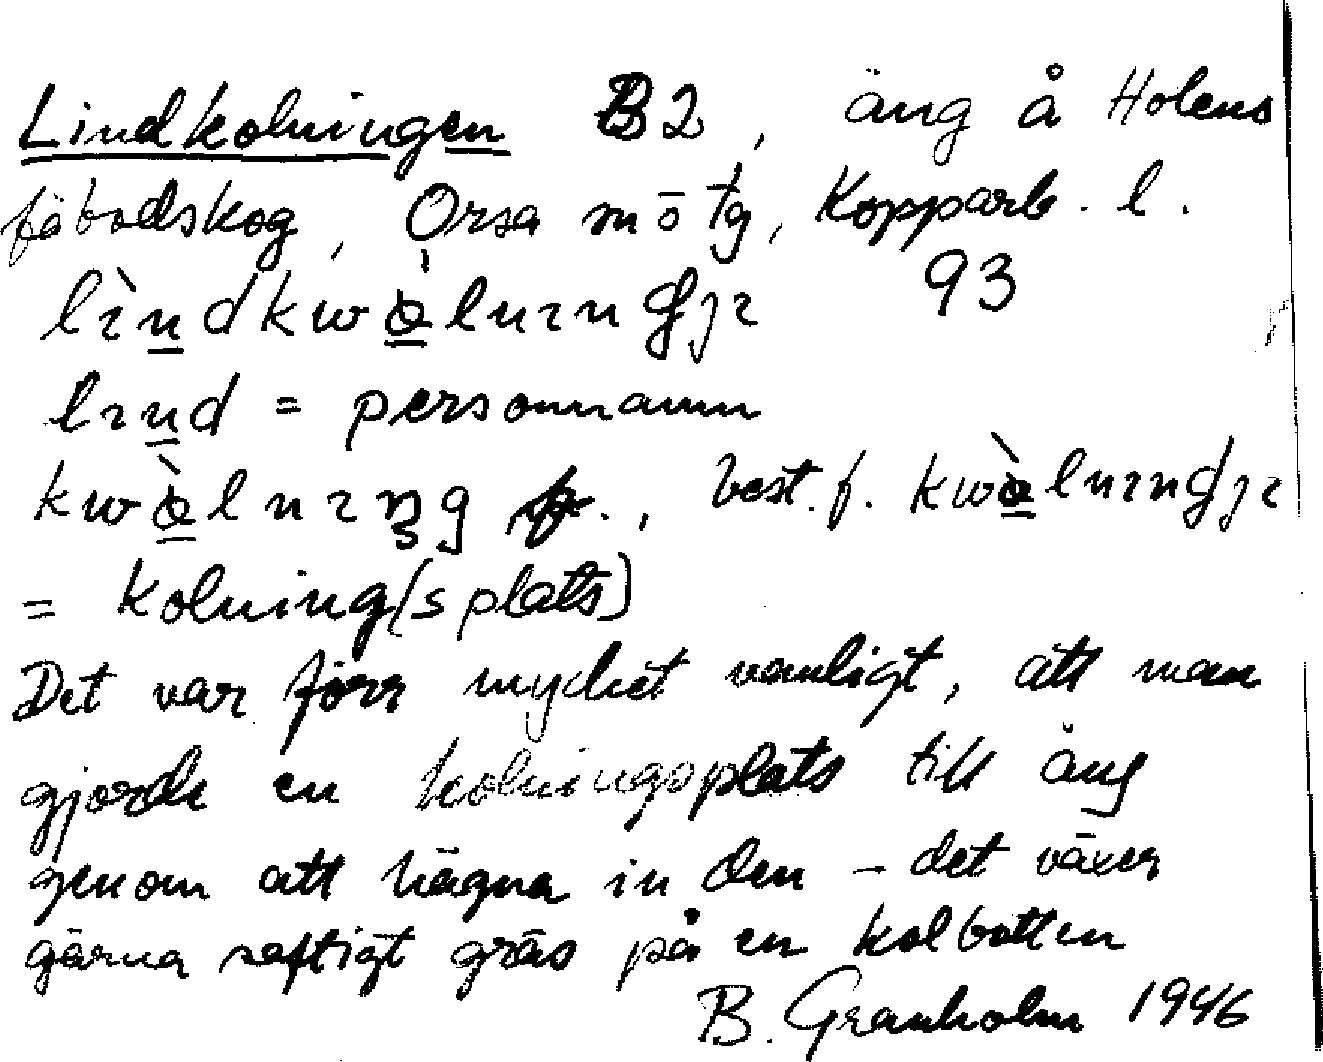 Lindkolningen B2, äng å Holens
fäbodskog, Orsa sn ö tg, Kopparb. l.
93
lìndkwòlnıngjı
lınd = personnamn
kwòlnıŋg f., best. f. kwòlnındjı
= kolning(splats)
Det var förr mycket vanligt, att man
gjorde en kolningsplats till äng
genom att hägna in den – det växer
gärna saftigt gräs på en kolbotten
B. Granholm 1946